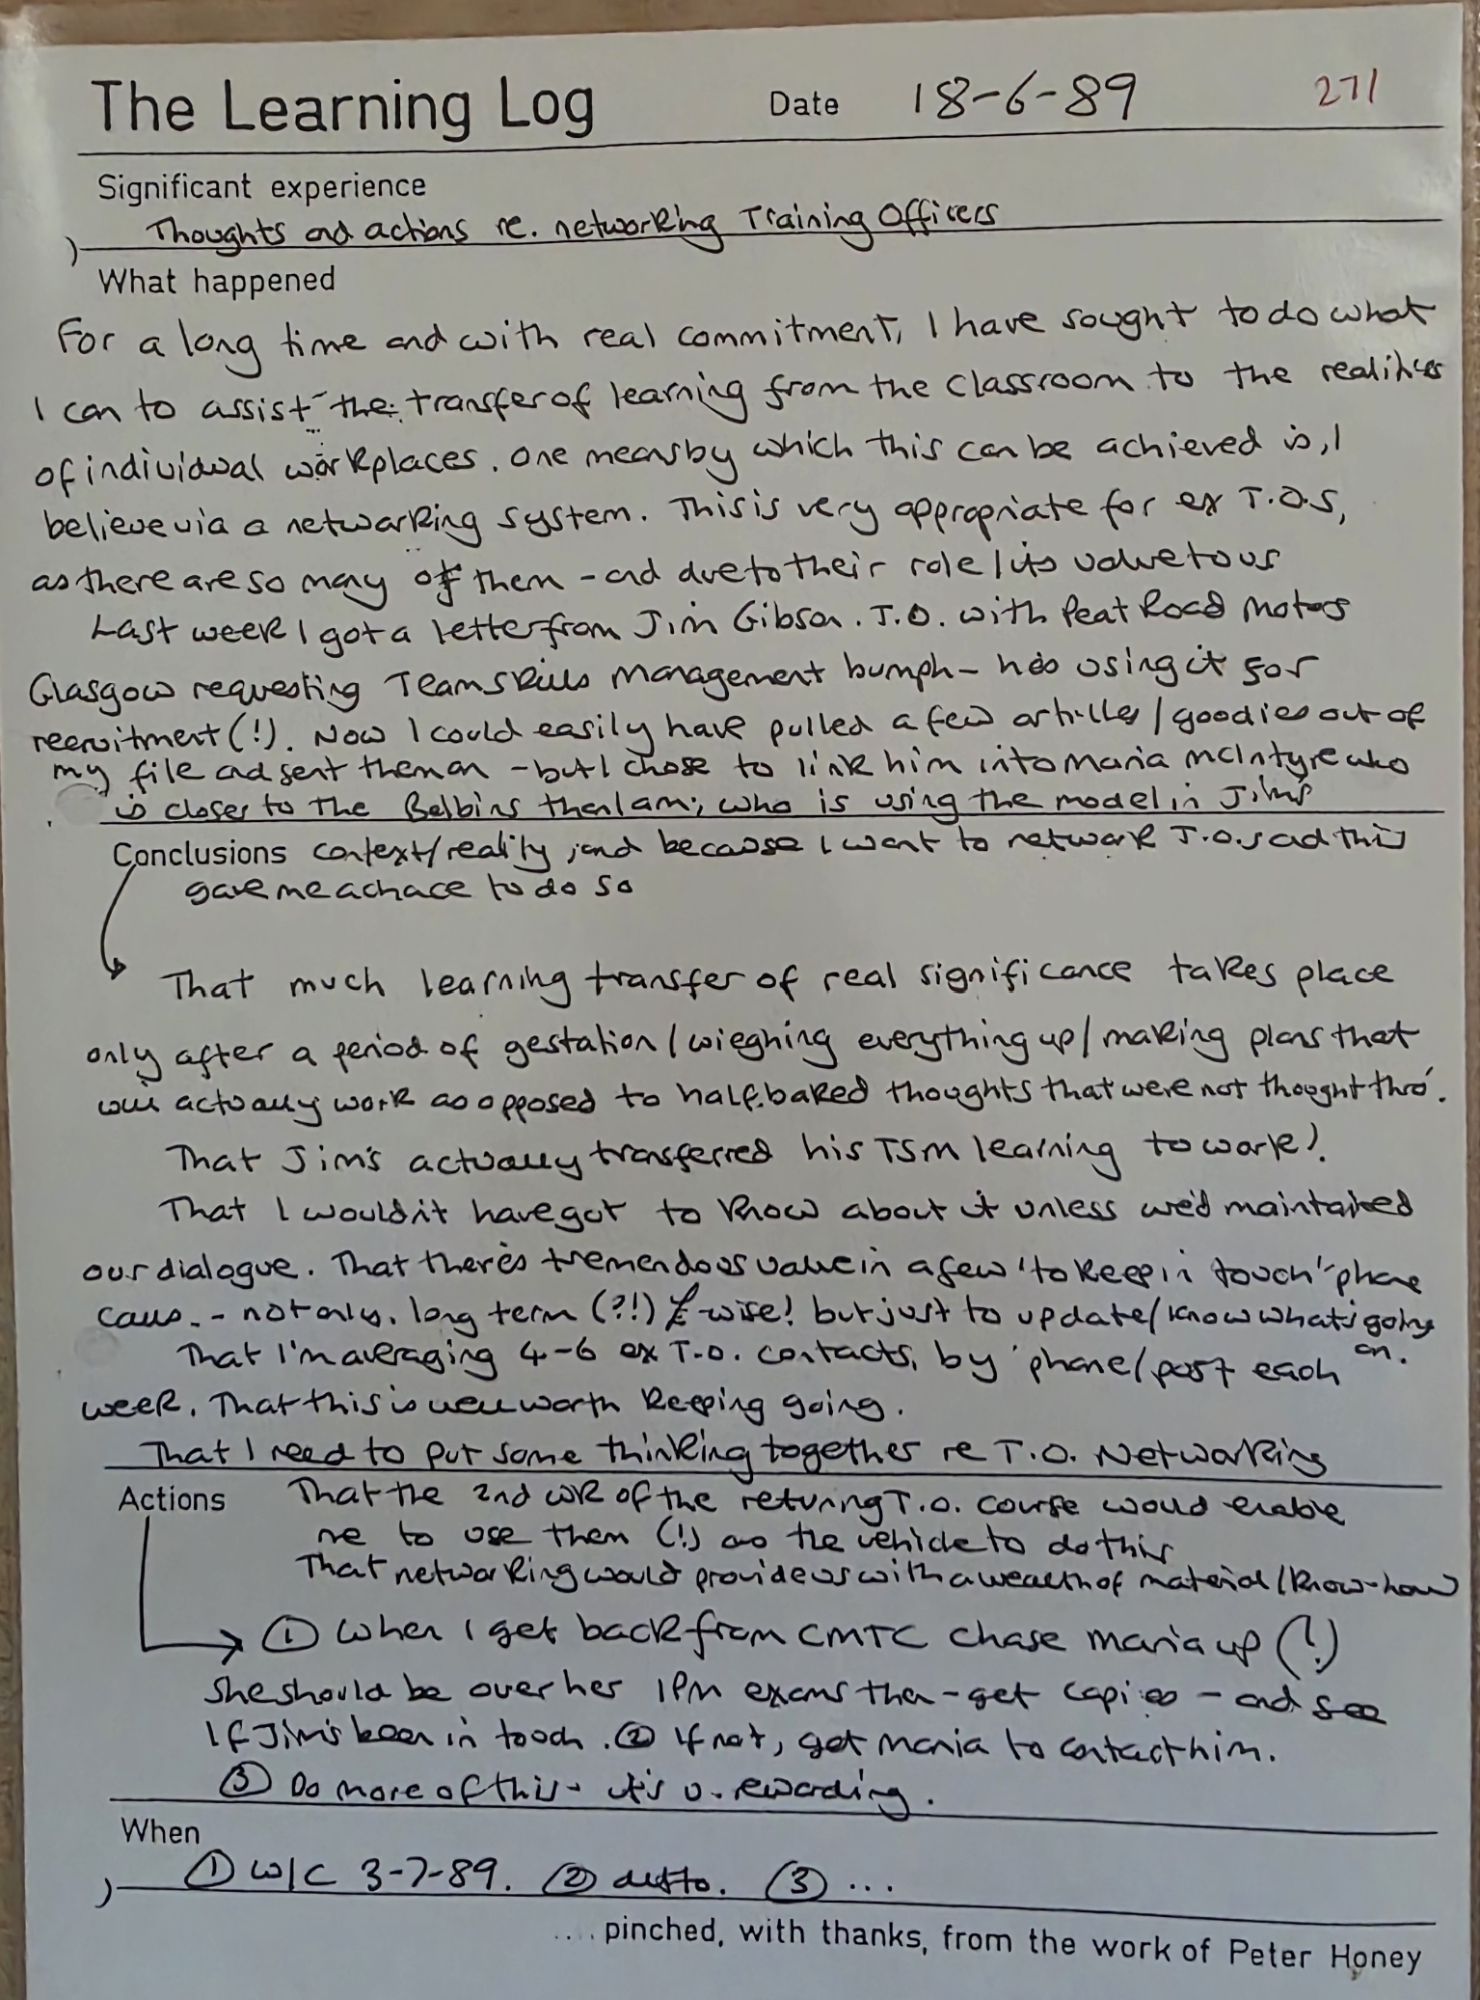 The Learning Log Date 18-6-89 271
Significant experience
Thoughts and actions re. networking Training Officers
What happened
For a long time and with real commitment, I have sought to do what
I can to assist the transfer of learning from the classroom to the realities
of individual workplaces. One means by which this can be achieved is, I
believe via a networking system. This is very appropriate for ex T.O.s,
as there are so many of them - and due to their role / its value to us
Last week I got a letter from Jim Gibson. T.O. with Peat Road Motors
Glasgow requesting Teamskills Management bumph - he's using it for
recruitment (!). Now I could easily have pulled a few articles / goodies out of
my file and sent them on - but I chose to link him into Maria McIntyre who
is closer to the Belbins than I am; who is using the model in Jim's
Conclusions context/reality; and because I want to network T.O.s ad this
gave me a chace to do so
That much learning transfer of real significance takes place
only after a period of gestation / wieghing everything up / making plans that
will actually work as opposed to half.baked thoughts that were not thought thro'.
That Jim's actually transferred his TSM learning to work!
That I wouldn't have got to know about it unless we'd maintained
our dialogue. That there's tremendous value in a few 'to keep in touch' phone
calls. - not only. long term (?!) £-wise! but just to update / know what's going
on.
That I'm averaging 4-6 ex T.O. contacts, by 'phone / post each
week. That this is well worth keeping going.
That I need to put some thinking together re T.O. Networking
Actions That the 2nd wk of the returning T.O. course would enable
me to use them (!) as the vehicle to do this
That networking would provide us with a wealth of material / know-how
① When I get back from CMTC chase Maria up (!)
She should be over her IPM exams then - get copies - and see
if Jim's been in touch. ② If not, get Maria to contact him.
③ Do more of this - it's v. rewarding.
When
① W/C 3-7-89. ② ditto. ③ ...
.... pinched, with thanks, from the work of Peter Honey